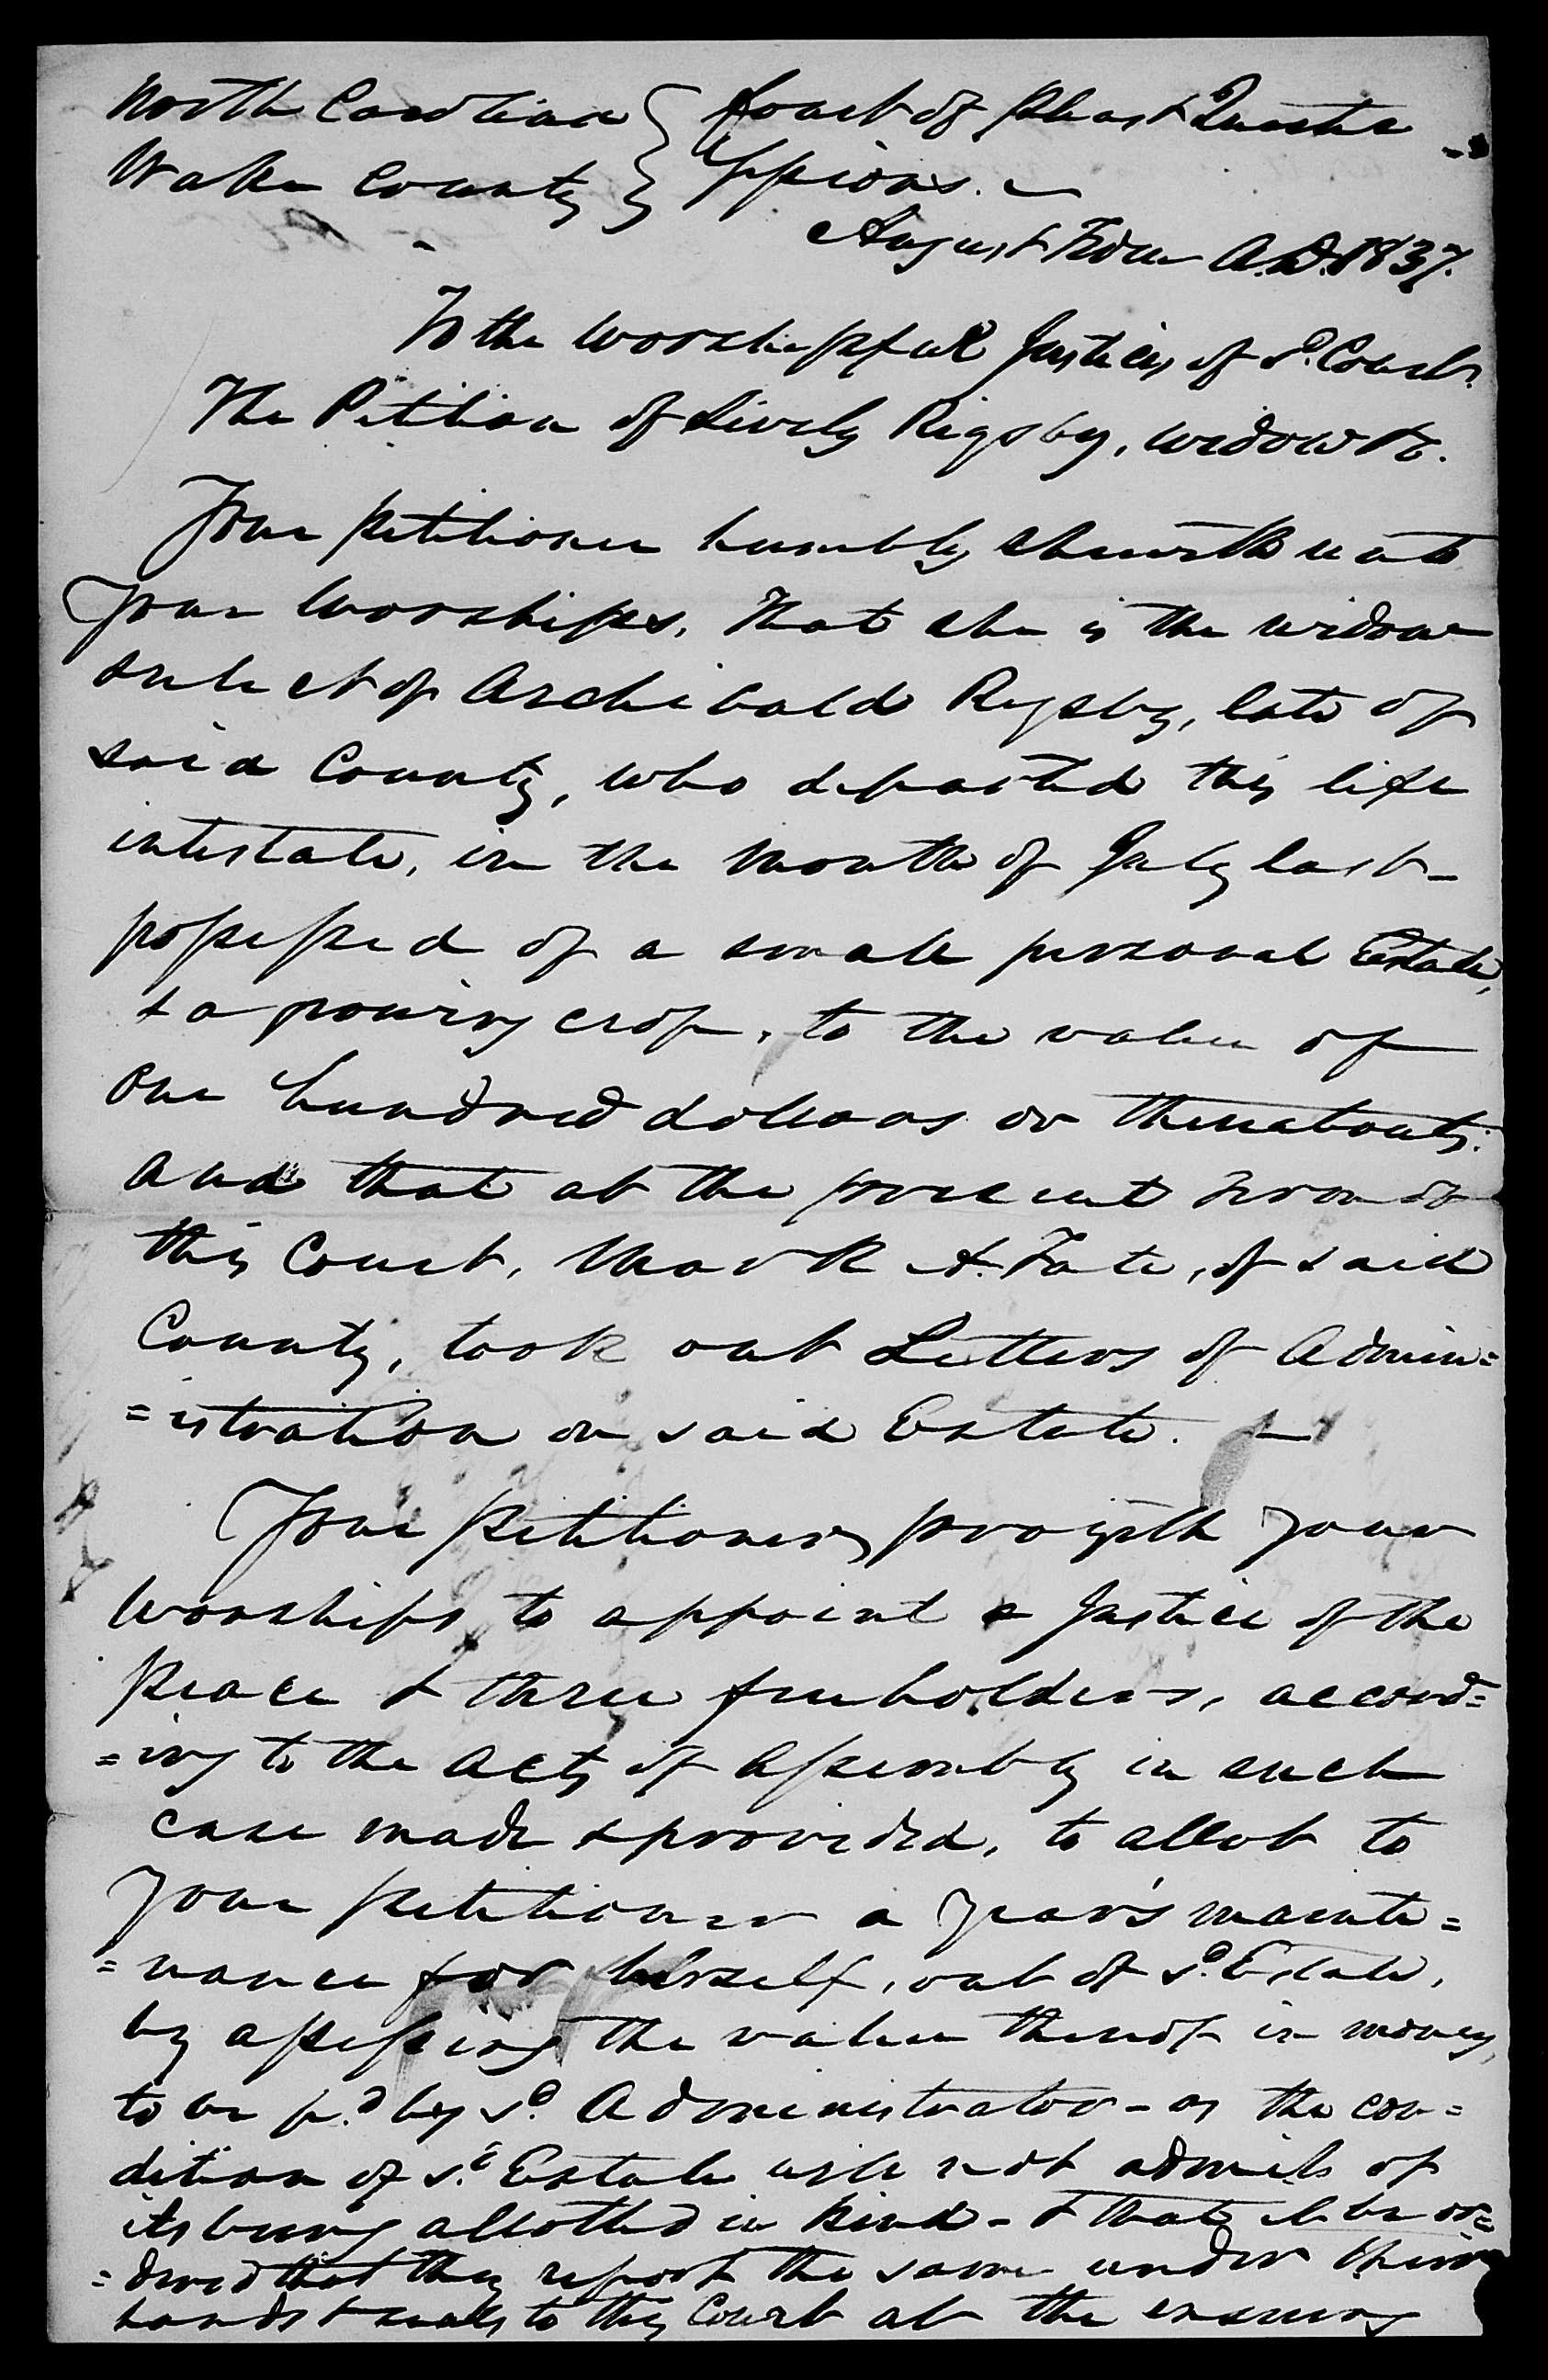 North Carolina } Court of Pleas & Quarter
Wake County } Sessions. —
August Term A.D. 1837.
To the Worshipful Justices of sd. Court.
The Petition of Lively Rigsby, widow &c.
Your petitioner humbly sheweth unto
Your Worships, that she is the widow
& relict of Archibald Rigsby, late of
said County, who departed this life
intestate, in the month of July last -
possessed of a small personal Estate,
& a growing crop, to the value of
one hundred dollars or thereabouts.
And that at the present Term of
this Court, Mark A. Fate, of said
County, took out Letters of Admin=
=istration on said Estate. —
Your petitioner, prayeth your
Worships to appoint a Justice of the
Peace & three freeholders, accord=
=ing to the acts of Assembly in such
case made & provided, to allot to
your petitioner a year's mainte=
=nance for herself, out of sd. Estate,
by assessing the value thereof in money,
to be pd. by sd. Administrator - as the con=
dition of sd. Estate will not admit of
its being allotted in kind - & that it be or=
=dered that they report the same under their
hands & seals to this Court at the ensuing